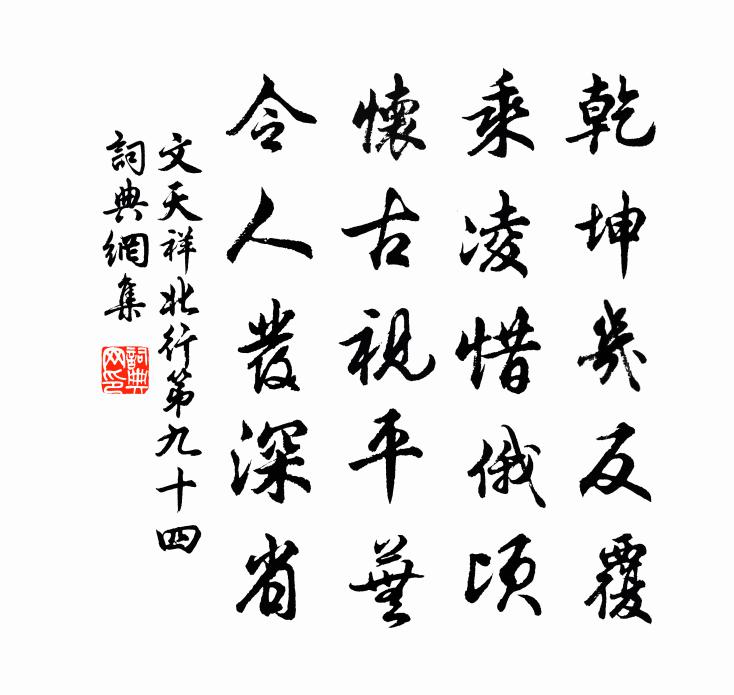 乾坤幾反覆
乘凌惜俄頃
懷古視平蕪
令人發深省
文天祥北行第九十四
詞典網集
詞典網印